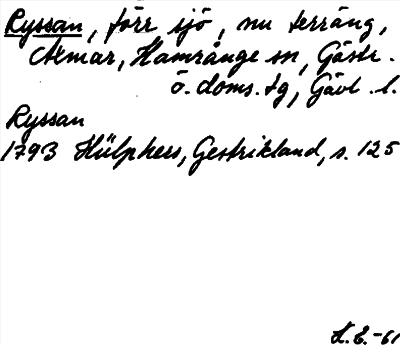 Ryssan, förr sjö, nu terräng,
Axmar, Hamrånge sn, Gästr.
ö. doms. tg, Gävl. l.
Ryssan
1793 Hülphers, Gestrikland, s. 125